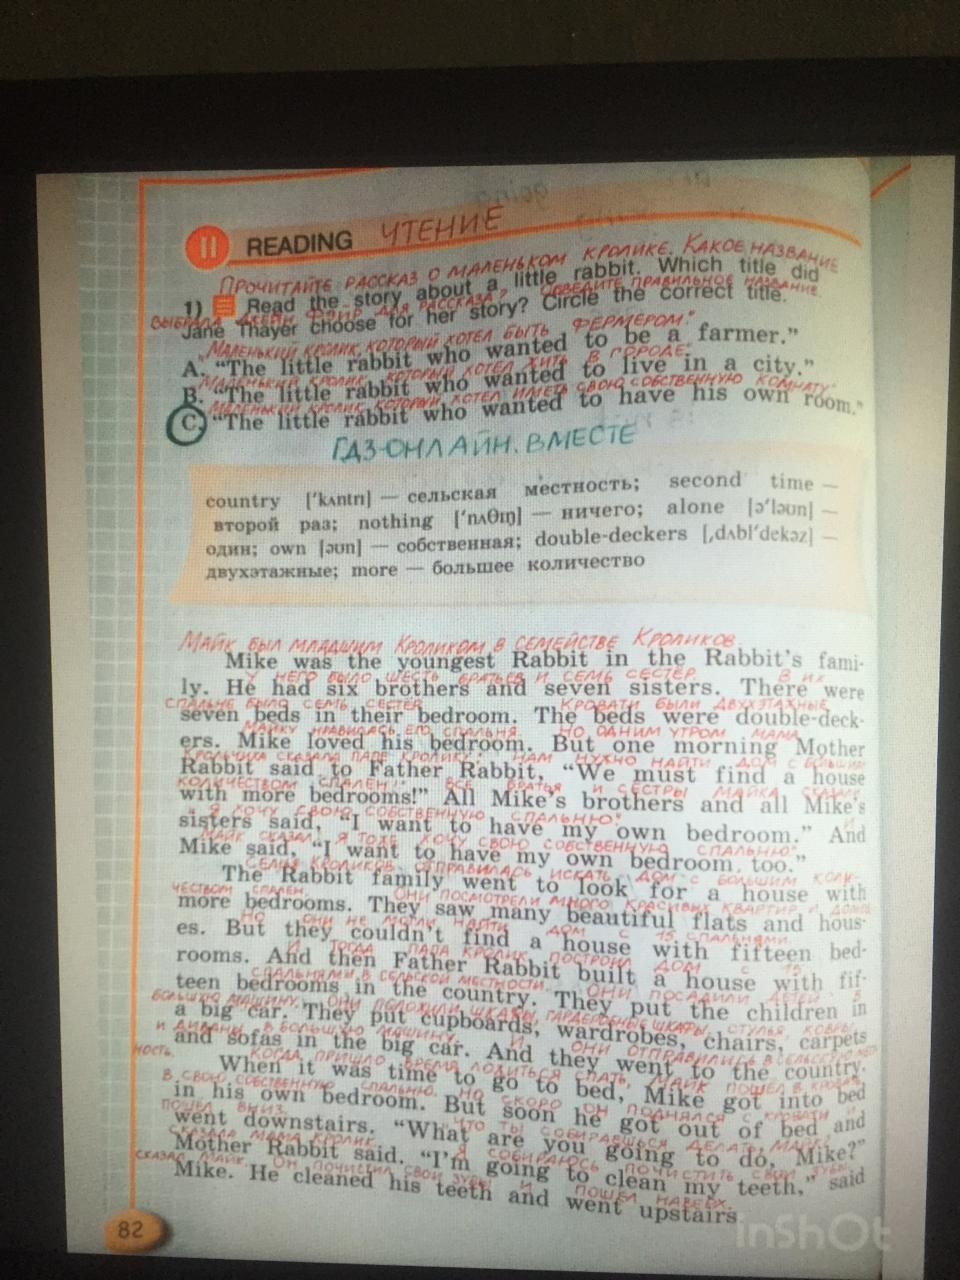 going
II READING ЧТЕНИЕ
ПРОЧИТАЙТЕ РАССКАЗ О МАЛЕНЬКОМ КРОЛИКЕ. КАКОЕ НАЗВАНИЕ
1) Read the story about a little rabbit. Which title did
ВЫБРАЛА ДЖЕЙН ФЭЙР ДЛЯ РАССКАЗА? ОБВЕДИТЕ ПРАВИЛЬНОЕ НАЗВАНИЕ.
Jane Thayer choose for her story? Circle the correct title.
"МАЛЕНЬКИЙ КРОЛИК, КОТОРЫЙ ХОТЕЛ БЫТЬ ФЕРМЕРОМ".
A. “The little rabbit who wanted to be a farmer.”
МАЛЕНЬКИЙ КРОЛИК, КОТОРЫЙ ХОТЕЛ ЖИТЬ В ГОРОДЕ.
B. “The little rabbit who wanted to live in a city.”
МАЛЕНЬКИЙ КРОЛИК, КОТОРЫЙ ХОТЕЛ ИМЕТЬ СВОЮ СОБСТВЕННУЮ КОМНАТУ.
C. “The little rabbit who wanted to have his own room.”
ГДЗ-ОНЛАЙН.ВМЕСТЕ
country [ˈkʌntrɪ] — сельская местность; second time —
второй раз; nothing [ˈnʌθɪŋ] — ничего; alone [əˈləʊn] —
один; own [əʊn] — собственная; double-deckers [ˌdʌblˈdekəz] —
двухэтажные; more — большее количество
МАЙК БЫЛ МЛАДШИМ КРОЛИКОМ В СЕМЕЙСТВЕ КРОЛИКОВ.
Mike was the youngest Rabbit in the Rabbit’s fami-
У НЕГО БЫЛО ШЕСТЬ БРАТЬЕВ И СЕМЬ СЕСТЕР. В ИХ
ly. He had six brothers and seven sisters. There were
СПАЛЬНЕ БЫЛО СЕМЬ СЕСТЕР. КРОВАТИ БЫЛИ ДВУХЭТАЖНЫЕ
seven beds in their bedroom. The beds were double-deck-
МАЙКУ НРАВИЛАСЬ ЕГО СПАЛЬНЯ. НО ОДНИМ УТРОМ МАМА
ers. Mike loved his bedroom. But one morning Mother
КРОЛЬЧИХА СКАЗАЛА ПАПЕ КРОЛИКУ: НАМ НУЖНО НАЙТИ ДОМ С БОЛЬШИМ
Rabbit said to Father Rabbit, “We must find a house
КОЛИЧЕСТВОМ СПАЛЕН!" ВСЕ БРАТЬЯ И СЕСТРЫ МАЙКА СКАЗАЛИ
with more bedrooms!” All Mike’s brothers and all Mike’s
"Я ХОЧУ СВОЮ СОБСТВЕННУЮ СПАЛЬНЮ". И
sisters said, “I want to have my own bedroom.” And
МАЙК СКАЗАЛ, "Я ТОЖЕ ХОЧУ СВОЮ СОБСТВЕННУЮ СПАЛЬНЮ".
Mike said, “I want to have my own bedroom, too.”
СЕМЬЯ КРОЛИКОВ ОТПРАВИЛАСЬ ИСКАТЬ ДОМ С БОЛЬШИМ КОЛИ-
The Rabbit family went to look for a house with
ЧЕСТВОМ СПАЛЕН. ОНИ ПОСМОТРЕЛИ МНОГО КРАСИВЫХ КВАРТИР И ДОМОВ
more bedrooms. They saw many beautiful flats and hous-
НО ОНИ НЕ МОГЛИ НАЙТИ ДОМ С 15 СПАЛЬНЯМИ.
es. But they couldn’t find a house with fifteen bed-
И ТОГДА ПАПА КРОЛИК ПОСТРОИЛ ДОМ С 15
rooms. And then Father Rabbit built a house with fif-
СПАЛЬНЯМИ В СЕЛЬСКОЙ МЕСТНОСТИ. ОНИ ПОСАДИЛИ ДЕТЕЙ В
teen bedrooms in the country. They put the children in
БОЛЬШУЮ МАШИНУ. ОНИ ПОЛОЖИЛИ ШКАФЫ, ГАРДЕРОБНЫЕ ШКАФЫ, СТУЛЬЯ, КОВРЫ
a big car. They put cupboards, wardrobes, chairs, carpets
И ДИВАНЫ В БОЛЬШУЮ МАШИНУ. И ОНИ ОТПРАВИЛИСЬ В СЕЛЬСКУЮ МЕСТ
and sofas in the big car. And they went to the country.
НОСТЬ. КОГДА ПРИШЛО ВРЕМЯ ЛОЖИТЬСЯ СПАТЬ, МАЙК ПОШЕЛ В КРОВАТЬ
When it was time to go to bed, Mike got into bed
В СВОЮ СОБСТВЕННУЮ СПАЛЬНЮ. НО СКОРО ОН ПОДНЯЛСЯ С КРОВАТИ И
in his own bedroom. But soon he got out of bed and
ПОШЕЛ ВНИЗ. "ЧТО ТЫ СОБИРАЕШЬСЯ ДЕЛАТЬ, МАЙК?
went downstairs. “What are you going to do, Mike?”
СКАЗАЛА МАМА КРОЛИК. "Я СОБИРАЮСЬ ПОЧИСТИТЬ СВОИ ЗУБЫ
Mother Rabbit said. “I’m going to clean my teeth,” said
СКАЗАЛ МАЙК. ОН ПОЧИСТИЛ СВОИ ЗУБЫ И ПОШЕЛ НАВЕРХ.
Mike. He cleaned his teeth and went upstairs.
82
InShOt